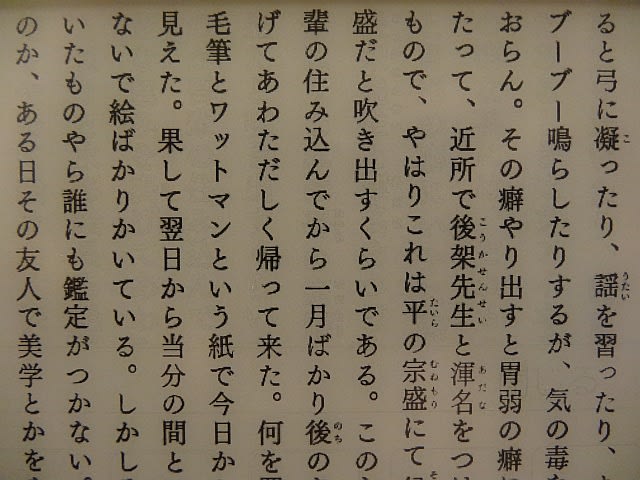 ると弓に凝ったり、謡を習ったり、
ブーブー鳴らしたりするが、気の毒な
おらん。その癖やり出すと胃弱の癖に
たって、近所で後架先生と渾名をつ
もので、やはりこれは平の宗盛にて
盛だと吹き出すくらいである。この
輩の住み込んでから一月ばかり後の
げてあわただしく帰って来た。何を
毛筆とワットマンという紙で今日か
見えた。果して翌日から当分の間と
ないで絵ばかりかいている。しかし
いたものやら誰にも鑑定がつかない。
のか、ある日その友人で美学とかを